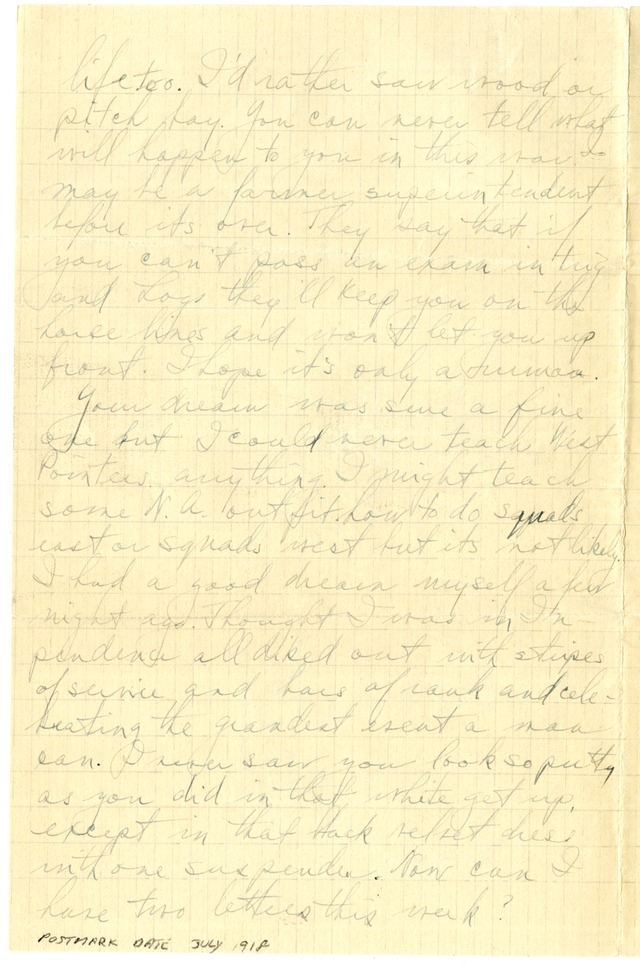 life too. I'd rather saw wood or
pitch hay. You can never tell what
will happen to you in this war
may be a farmer superintendent
before its over. They say that if
you can't pass an exam in trig
and Logs they'll keep you on the
horse lines and won't let you up
front. I hope it's only a rumor.
Your dream was sure a fine
one but I could never teach West
Pointers anything. I might teach
some N.A. outfit how to do squads
east or squads west but its not likely.
I had a good dream myself a few
night ago. Thought I was in In-
pendence all diked out with stripes
of service and bars of rank and cele-
brating the grandest event a man
can. I never saw you look so putty
as you did in that white get up,
except in that black velvet dress
with one suspender. Now can I
have two letters this week?
POSTMARK DATE JULY 1918